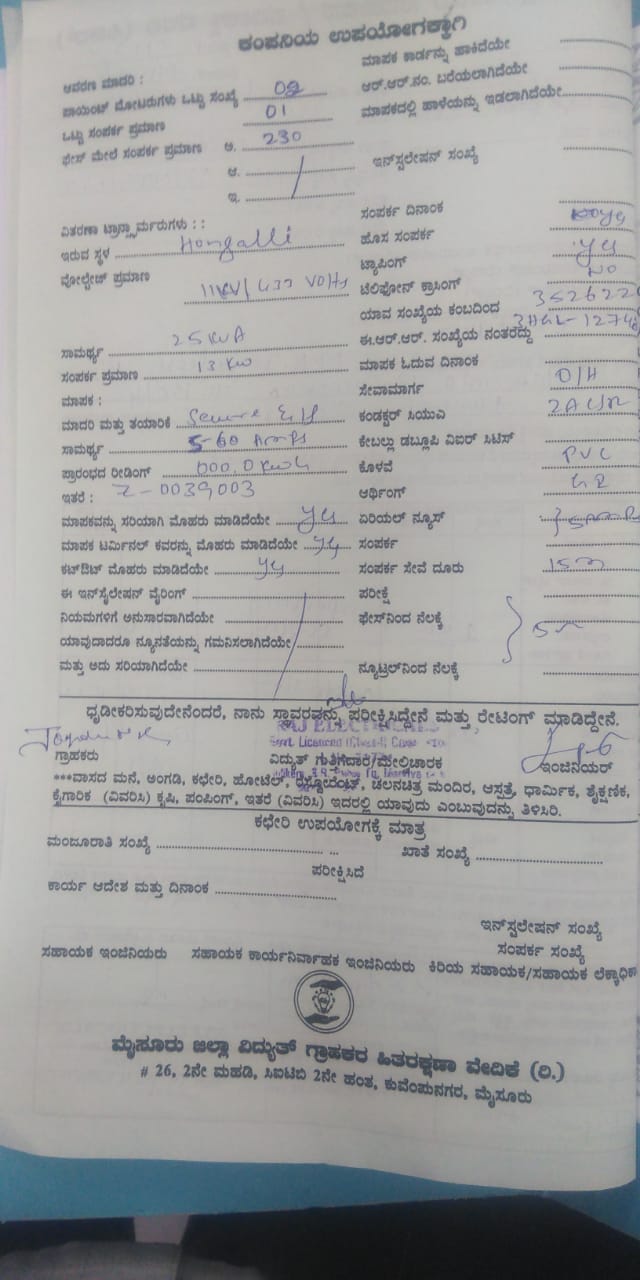 ಕಂಪನಿಯ ಉಪಯೋಗಕ್ಕಾಗಿ
ಆವರಣ ಮಾದರಿ :
ಪಾಯಿಂಟ್ ಮೋಟರುಗಳು ಒಟ್ಟು ಸಂಖ್ಯೆ
ಒಟ್ಟು ಸಂಪರ್ಕ ಪ್ರಮಾಣ 01
ಫೇಸ್ ಮೇಲೆ ಸಂಪರ್ಕ ಪ್ರಮಾಣ ಅ. 230
ಆ.
ಇ.
ವಿತರಣಾ ಟ್ರಾನ್ಸ್ಫಾರ್ಮರುಗಳು : :
ಇರುವ ಸ್ಥಳ Hongalli
ವೋಲ್ಟೇಜ್ ಪ್ರಮಾಣ 11KV/433 Volts
ಸಾಮರ್ಥ್ಯ 25KVA
ಸಂಪರ್ಕ ಪ್ರಮಾಣ 13 KW
ಮಾಪಕ :
ಮಾದರಿ ಮತ್ತು ತಯಾರಿಕೆ Secure
ಸಾಮರ್ಥ್ಯ 5-60 Amps
ಪ್ರಾರಂಭದ ರೀಡಿಂಗ್ 000.0 Kwh
ಇತರೆ : Z-0039003
ಮಾಪಕವನ್ನು ಸರಿಯಾಗಿ ಮೊಹರು ಮಾಡಿದೆಯೇ yes
ಮಾಪಕ ಟರ್ಮಿನಲ್ ಕವರನ್ನು ಮೊಹರು ಮಾಡಿದೆಯೇ yes
ಕಟ್‌ಔಟ್ ಮೊಹರು ಮಾಡಿದೆಯೇ yes
ಈ ಇನ್‌ಸ್ಟಲೇಷನ್ ವೈರಿಂಗ್
ನಿಯಮಗಳಿಗೆ ಅನುಸಾರವಾಗಿದೆಯೇ
ಯಾವುದಾದರೂ ನ್ಯೂನತೆಯನ್ನು ಗಮನಿಸಲಾಗಿದೆಯೇ
ಮತ್ತು ಅದು ಸರಿಯಾಗಿದೆಯೇ
ಮಾಪಕ ಕಾರ್ಡನ್ನು ಹಾಕಿದೆಯೇ
ಆರ್.ಆರ್.ನಂ. ಬರೆಯಲಾಗಿದೆಯೇ
ಮಾಪಕದಲ್ಲಿ ಹಾಳೆಯನ್ನು ಇಡಲಾಗಿದೆಯೇ
ಇನ್‌ಸ್ಟಲೇಷನ್ ಸಂಖ್ಯೆ
ಸಂಪರ್ಕ ದಿನಾಂಕ
ಹೊಸ ಸಂಪರ್ಕ yes
ಟ್ಯಾಪಿಂಗ್ No
ಟೆಲಿಫೋನ್ ಕ್ರಾಸಿಂಗ್
ಯಾವ ಸಂಖ್ಯೆಯ ಕಂಬದಿಂದ 352622
ಈ.ಆರ್.ಆರ್. ಸಂಖ್ಯೆಯ ನಂತರದ್ದು
ಮಾಪಕ ಓದುವ ದಿನಾಂಕ
ಸೇವಾಮಾರ್ಗ O/H
ಕಂಡಕ್ಟರ್ ಸಿಯುವಿ
ಕೇಬಲ್ಲು ಡಬ್ಲೂಪಿ ವಿಐರ್ ಸಿಟಿಸ್
ಕೊಳವೆ PVC
ಆರ್ಥಿಂಗ್
ಏರಿಯಲ್ ನ್ಯೂಸ್
ಸಂಪರ್ಕ
ಸಂಪರ್ಕ ಸೇವೆ ದೂರು 15m
ಪರೀಕ್ಷೆ
ಫೇಸ್‌ನಿಂದ ನೆಲಕ್ಕೆ
ನ್ಯೂಟ್ರಲ್‌ನಿಂದ ನೆಲಕ್ಕೆ
ಧೃಡೀಕರಿಸುವುದೇನೆಂದರೆ, ನಾನು ಸ್ಥಾವರವನ್ನು ಪರೀಕ್ಷಿಸಿದ್ದೇನೆ ಮತ್ತು ರೇಟಿಂಗ್ ಮಾಡಿದ್ದೇನೆ.
RAJ ELECTRICALS
ಗ್ರಾಹಕರು ವಿದ್ಯುತ್ ಗುತ್ತಿಗೆದಾರ/ಮೇಲಿಚಾರಕ ಇಂಜಿನಿಯರ್
***ವಾಸದ ಮನೆ, ಅಂಗಡಿ, ಕಛೇರಿ, ಹೋಟೆಲ್, ರೆಸ್ಟೋರೆಂಟ್, ಚಲನಚಿತ್ರ ಮಂದಿರ, ಆಸ್ಪತ್ರೆ, ಧಾರ್ಮಿಕ, ಶೈಕ್ಷಣಿಕ,
ಕೈಗಾರಿಕೆ (ವಿವರಿಸಿ) ಕೃಷಿ, ಪಂಪಿಂಗ್, ಇತರೆ (ವಿವರಿಸಿ) ಇದರಲ್ಲಿ ಯಾವುದು ಎಂಬುವುದನ್ನು ತಿಳಿಸಿರಿ.
ಕಛೇರಿ ಉಪಯೋಗಕ್ಕೆ ಮಾತ್ರ
ಮಂಜೂರಾತಿ ಸಂಖ್ಯೆ ಖಾತೆ ಸಂಖ್ಯೆ
ಪರೀಕ್ಷಿಸಿದೆ
ಕಾರ್ಯ ಆದೇಶ ಮತ್ತು ದಿನಾಂಕ
ಇನ್‌ಸ್ಟಲೇಷನ್ ಸಂಖ್ಯೆ
ಸಂಪರ್ಕ ಸಂಖ್ಯೆ
ಸಹಾಯಕ ಇಂಜಿನಿಯರು ಸಹಾಯಕ ಕಾರ್ಯನಿರ್ವಾಹಕ ಇಂಜಿನಿಯರು ಕಿರಿಯ ಸಹಾಯಕ/ಸಹಾಯಕ ಲೆಕ್ಕಾಧಿಕಾ
ಮೈಸೂರು ಜಿಲ್ಲಾ ವಿದ್ಯುತ್ ಗ್ರಾಹಕರ ಹಿತರಕ್ಷಣಾ ವೇದಿಕೆ (ರಿ.)
# 26, 2ನೇ ಮಹಡಿ, ಸಿಐಟಿಬಿ 2ನೇ ಹಂತ, ಕುವೆಂಪುನಗರ, ಮೈಸೂರು